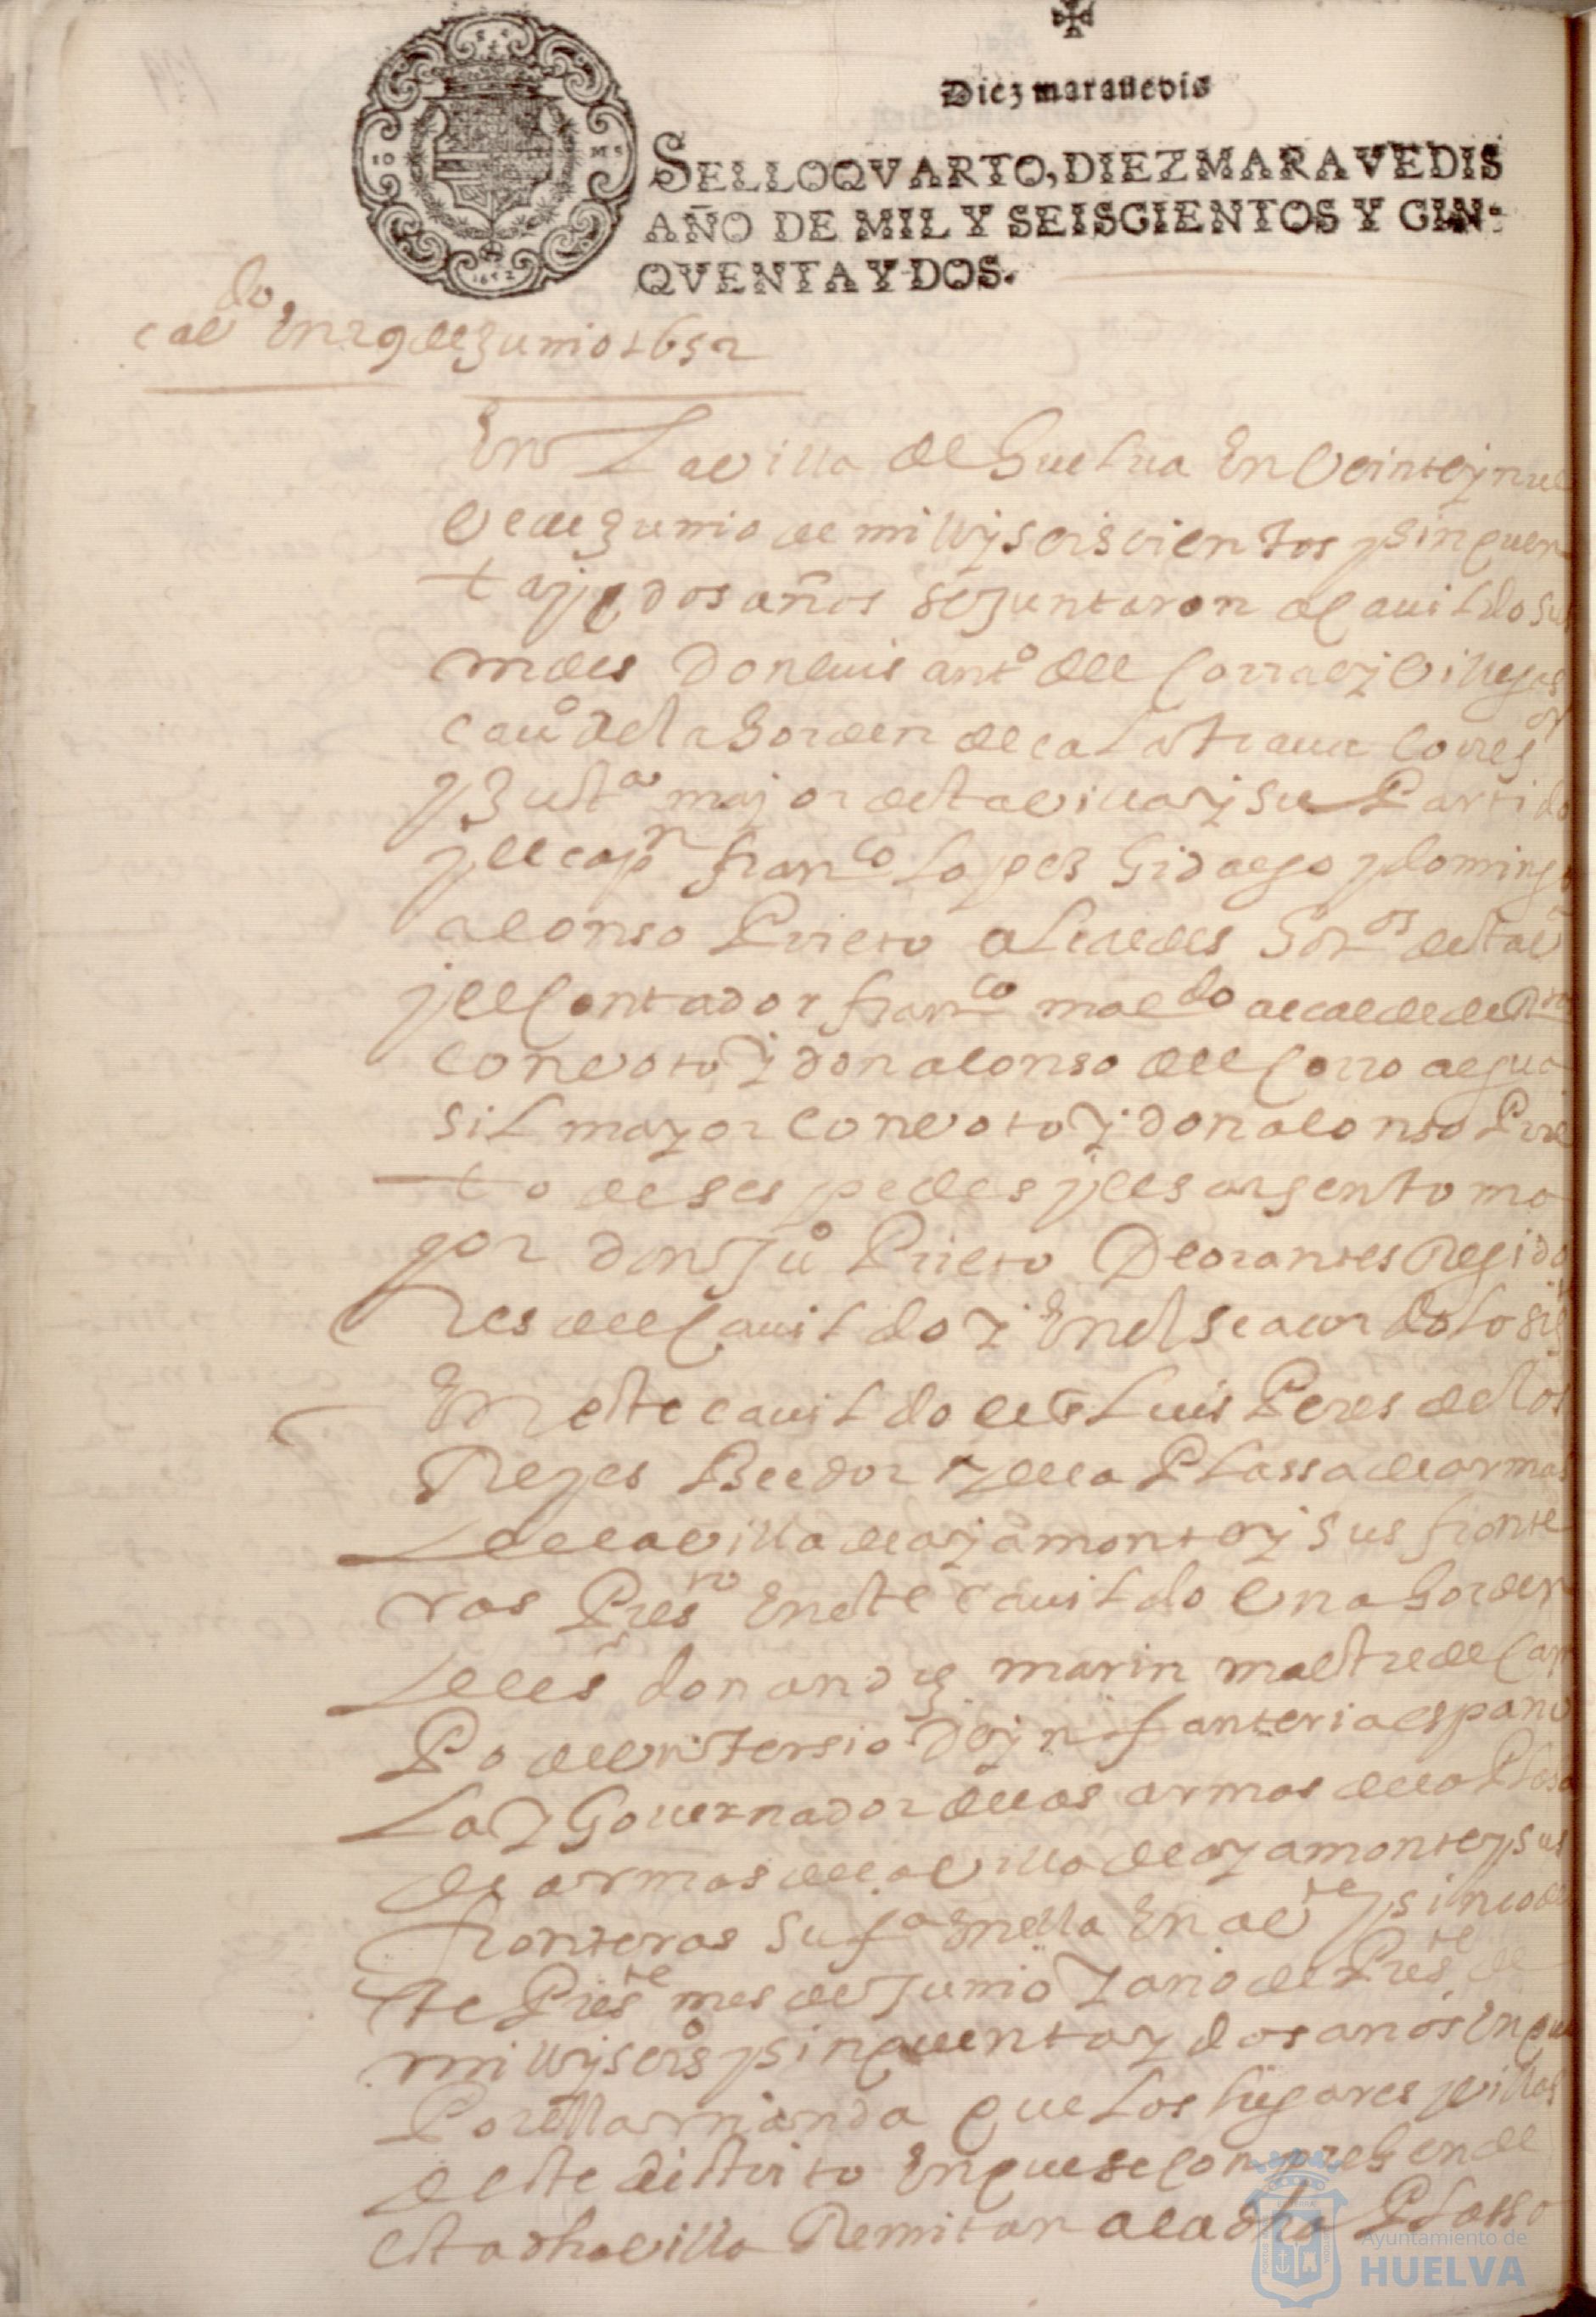 Diez maravedis
SELLO QVARTO, DIEZ MARAVEDIS
AÑO DE MIL Y SEISCIENTOS Y CIN-
QVENTA Y DOS.
1652
cavdo En 29 de Junio 1652
En La villa de Guelua En Veinte y nue
Ve de Junio de mill y seiscientos y sinquen
ta y dos años se Juntaron a Cauildo sus
mdes Don luis anto del Corral y Villegas
cauo de la horden de calatraua Corregor
y Justa major desta villa y su Partido
y el capn franco Lopes hidalgo y domingo
alonso Prieto alcaldes hordros desta va
y el Contador franco maldo alcalde de
con voto y don alonso del Corro algua
sil mayor con voto y don alonso Prie
to de sespedes y el sargento ma
yor don Juo Prieto Regido
Res del Cauildo y En el se acordo Lo sig
En este cauildo Luis Peres de los
Reyes Beedor de la Plassa de armas
de la villa de ayamonte y sus fronte
ras Presro En este cauildo Vna horden
del sr don marin maestre de Cam
Po de Vn tersio de ynfanteria españo
La y Gouernador de las armas de la Plasa
de armas de la villa de ayamonte y sus
fronteras su fa En ella En ve y sinco des
te Preste mes de Junio y año del Preste de
mill y seiso y sinquenta y dos años En que
Por ella manda que Los lugares y villas
deste distrito En que se Conprehende
esta dha villa Remitan a la dha Plassa
Ayuntamiento de
HUELVA